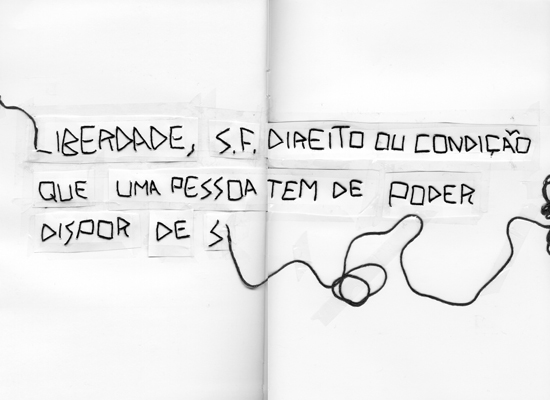 LIBERDADE, S.F. DIREITO OU CONDIÇÃO
QUE UMA PESSOA TEM DE PODER
DISPOR DE SI